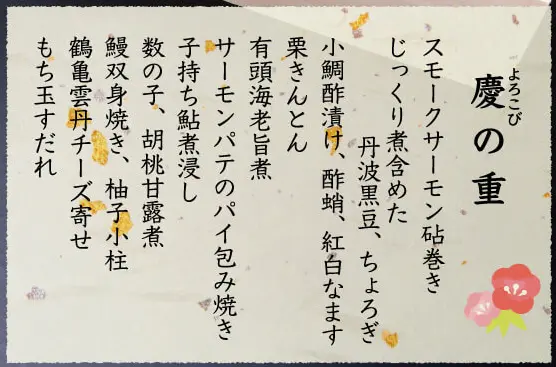 慶の重
よろこび
スモークサーモン砧巻き
じっくり煮含めた
丹波黒豆、ちょろぎ
小鯛酢漬け、酢蛸、紅白なます
栗きんとん
有頭海老旨煮
サーモンパテのパイ包み焼き
子持ち鮎煮浸し
数の子、胡桃甘露煮
鰻双身焼き、柚子小柱
鶴亀雲丹チーズ寄せ
もち玉すだれ